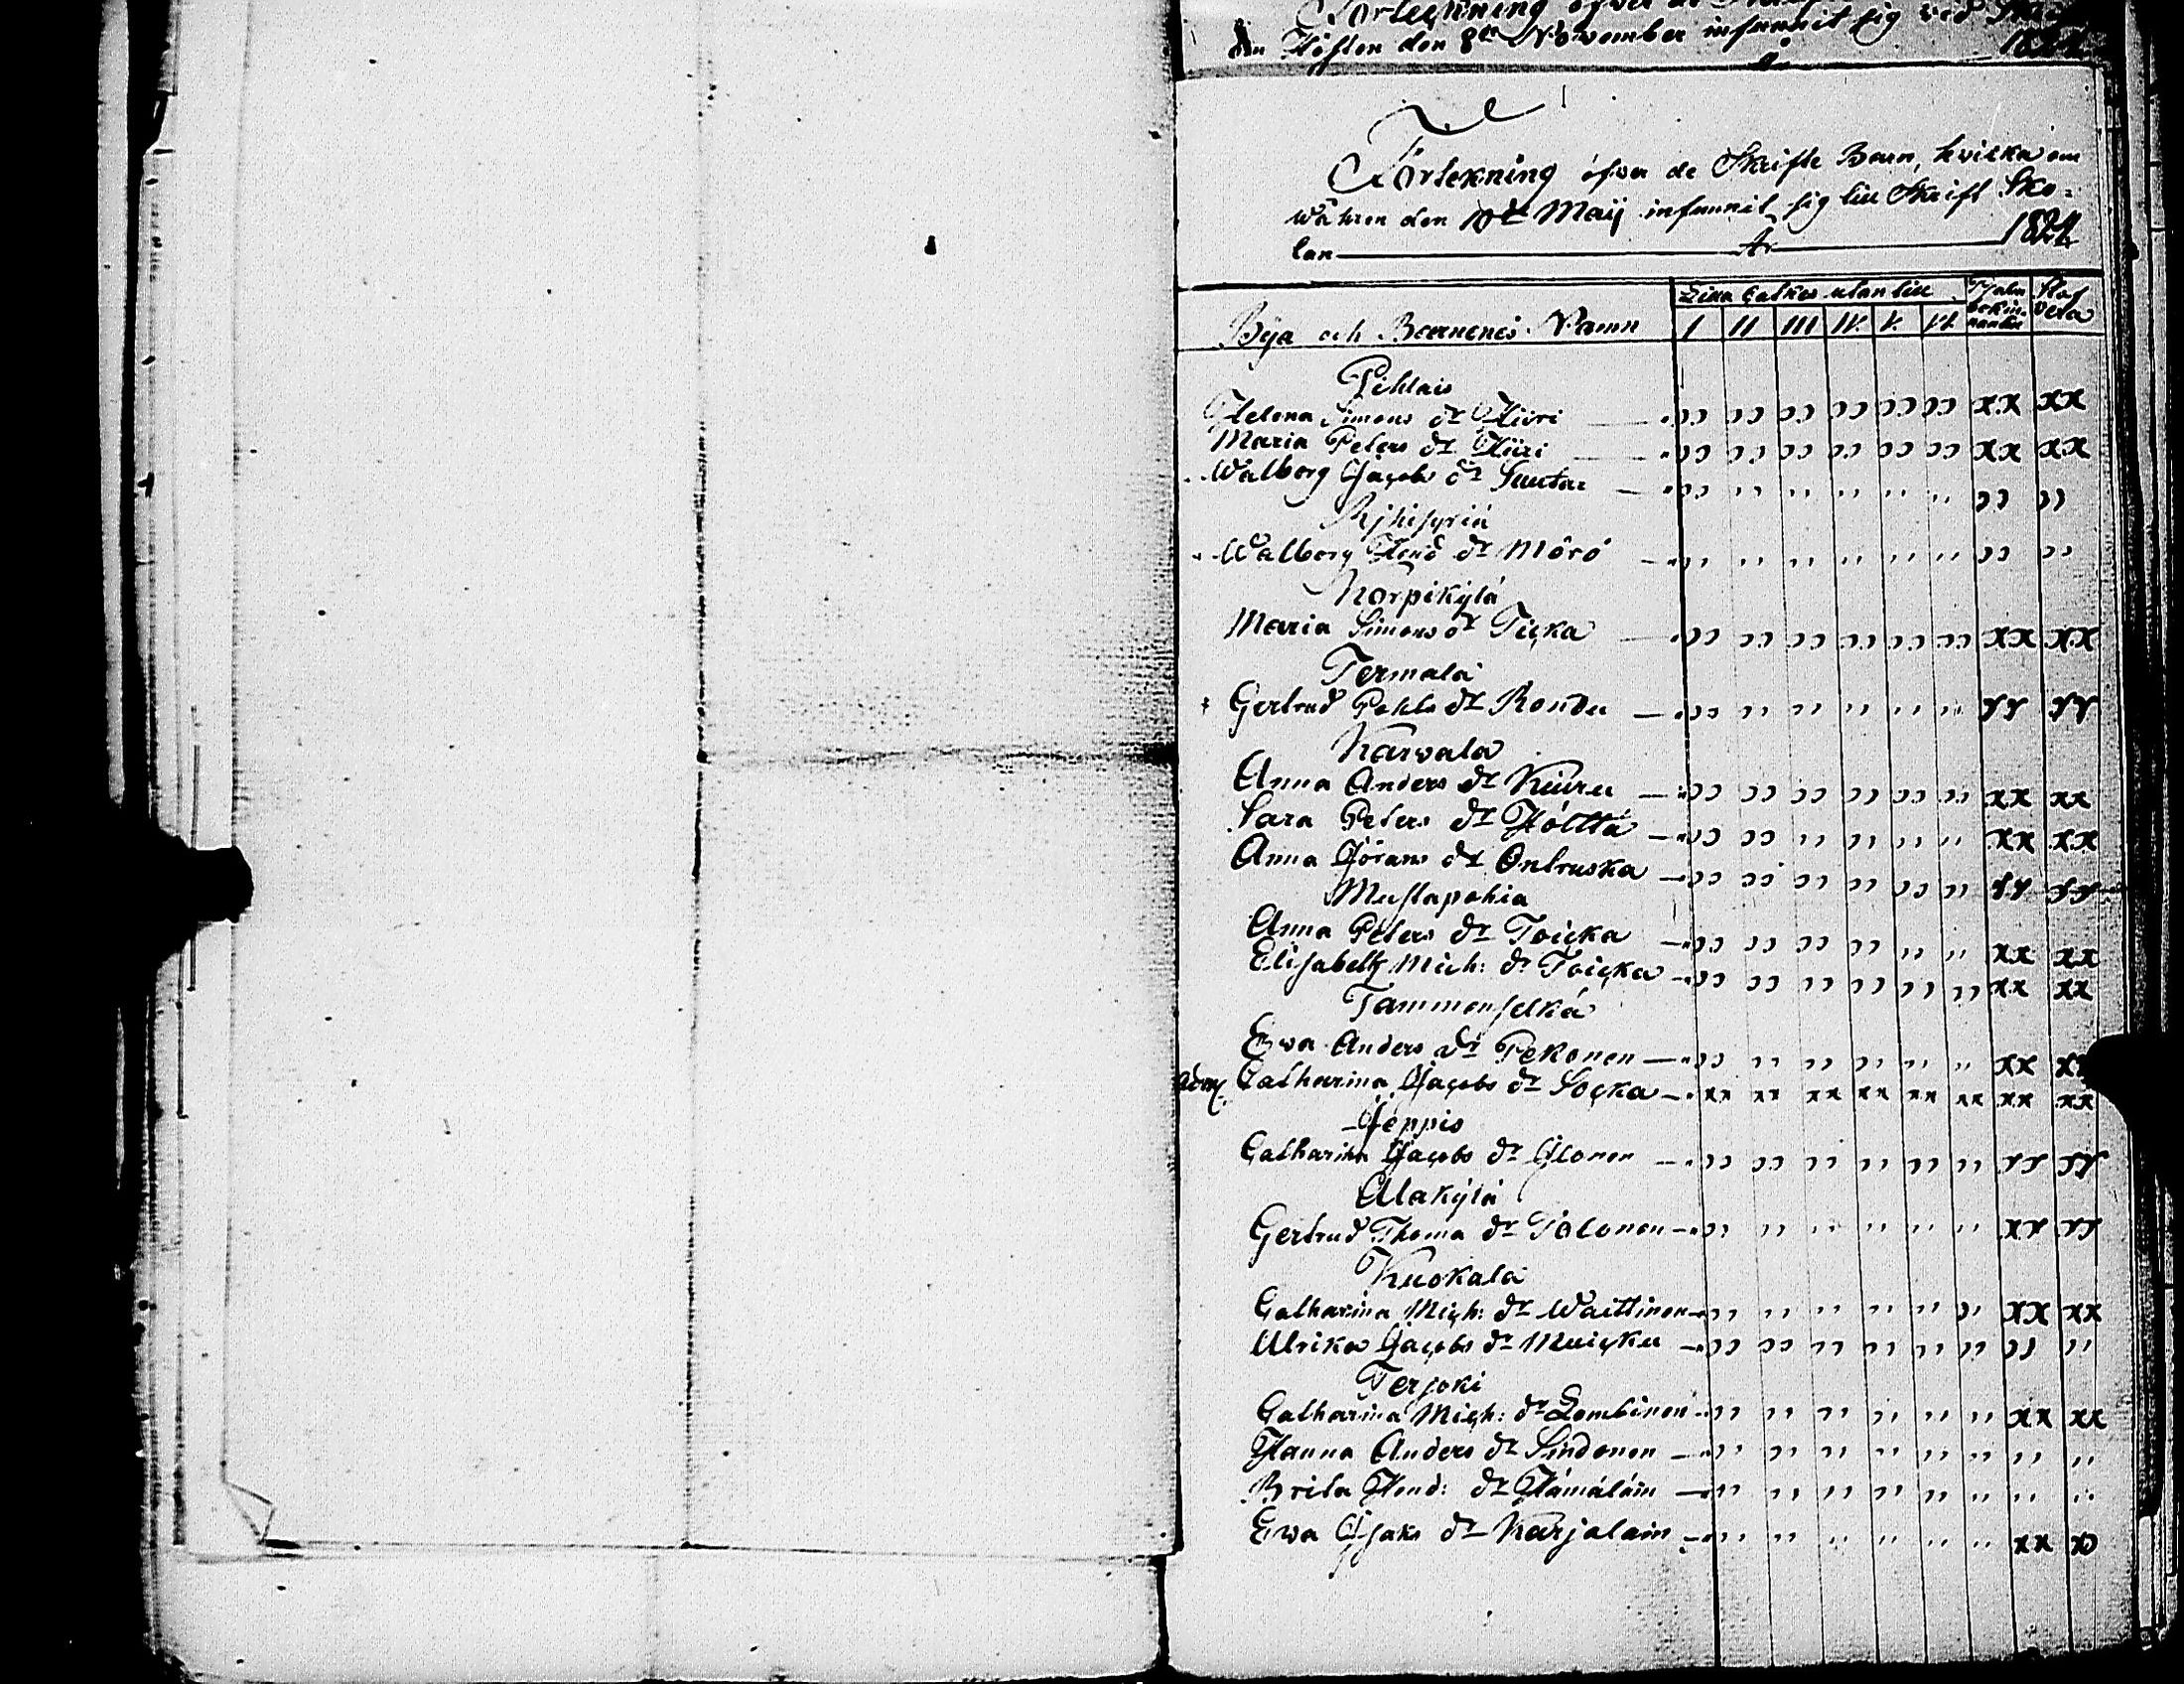 Förteckning öfver de
om Hösten den 8de November infunnit sig vid
år 1824
Förtekning öfver de Skrifte Barn, hvilka om
Wåhren den 10de Maij infunnit sig till Skrift Sko-
lan År 1824
Lilla Catkes utan till
Bÿa och Barnenes Namn I II III IV. V. VI.
Pihlais
Helena Simons dr Hiiri " " " " " " xx xx
Maria Peters dr Hiiri " " " " " " xx xx
Walborg Jacobs dr Suutar " " " " " " " "
Walborg Hend dr Mörö " " " " " " " "
Korpikÿlä
Maria Simons dr Ticka " " " " " " xx xx
Termälä
Gertrud Pohls dr Rondu " " " " " " xx xx
Karwala
Anna Anders dr Kiuru " " " " " " xx xx
Sara Peters dr Hölttä " " " " " " xx xx
Anna Görans dr Ontruska " " " " " " xx xx
Mustapohia
Anna Peters dr Toicka " " " " " " xx xx
Elisabeth Mich: dr Toicka " " " " " " xx xx
Tammenselkä
Ewa Anders dr Pekonen " " " " " " xx xx
Catharina Jacobs dr Socka xx xx xx xx xx xx xx xx
Jeppis
Catharina Jacobs dr Ilonen " " " " " " xx xx
Alakÿlä
Gertrud Thoma dr Tolonen " " " " " " xx xx
Kuokala
Catharina Mich: dr Waittinen " " " " " " xx xx
Ulrika Jacobs dr Muicku " " " " " " " "
Terjoki
Catharina Mich: dr Lembinen " " " " " " xx xx
Hanna Anders dr Sindonen " " " " " " " "
Brita Hend: dr Hämäläin " " " " " " " "
Ewa Isaks dr Karjalain " " " " " " xx x